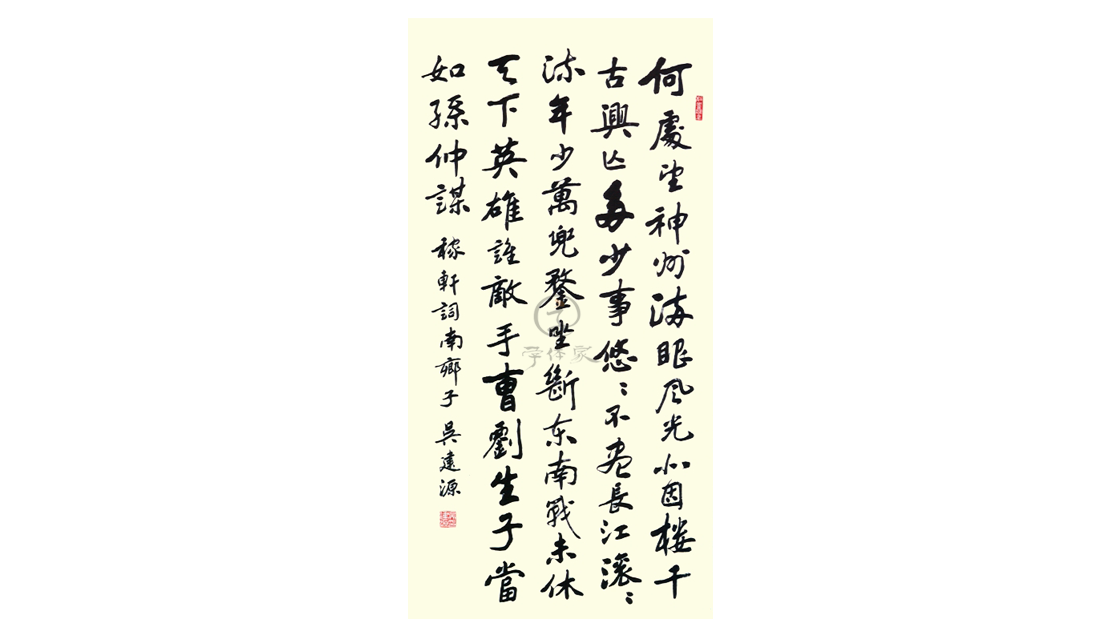 何處望神州满眼风光北固楼千
古興亡多少事悠〻不尽長江滚〻
流年少萬兜鍪坐斷东南戰未休
天下英雄誰敵手曹劉生子當
如孫仲謀 稼軒詞南鄉子 吴建源
字体家